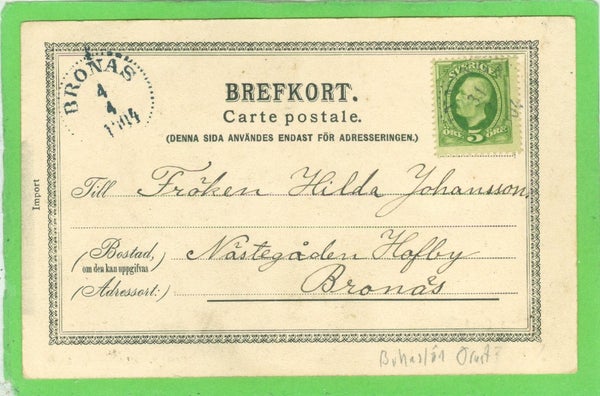 BRONÄS
4
4
1904
SVERIGE
ÖRE 5 ÖRE
BREFKORT.
Carte postale.
(DENNA SIDA ANVÄNDES ENDAST FÖR ADRESSERINGEN.)
Import
Till Fröken Hilda Johansson,
(Bostad,
om den kan uppgifvas
Nästegåden Hofby
(Adressort:) Bronäs